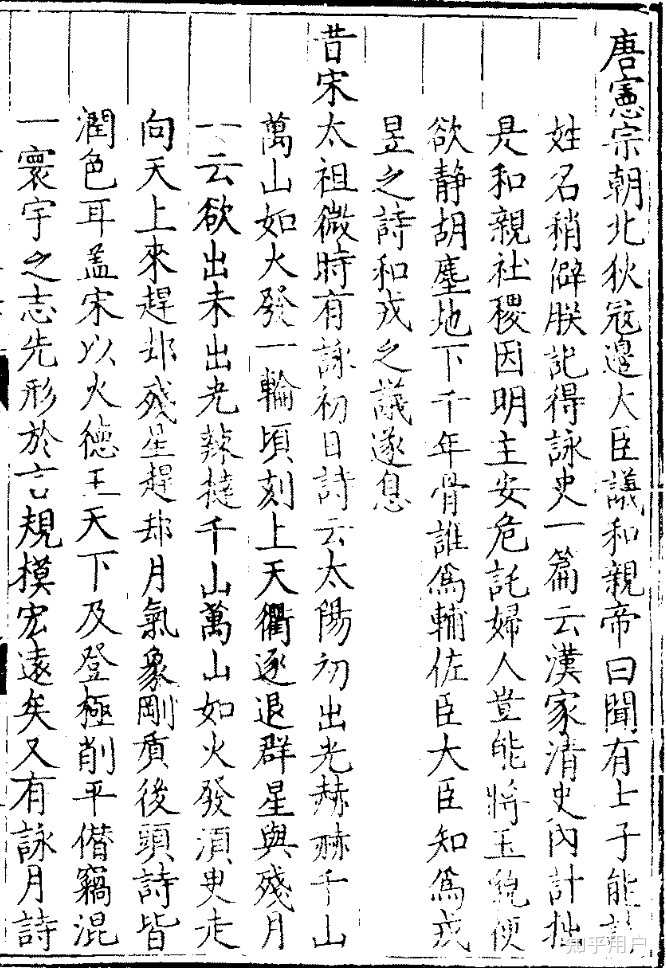 唐憲宗朝北狄冦邊大臣議和親帝曰聞有士子能詩
姓名稍僻朕記得詠史一篇云漢家清史内計拙
是和親社稷因明主安危託婦人豈能將玉貌便
欲靜胡塵地下千年骨誰爲輔佐臣大臣知爲戎
昱之詩和戎之議遂息
昔宋太祖微時有詠初日詩云太陽初出光赫赫千山
萬山如火發一輪頃刻上天衢逐退群星與殘月
一云欲出未出光辣撻千山萬山如火發湏臾走
向天上來趕却殘星趕却月氣象剛質後頭詩皆
潤色耳盖宋以火德王天下及登極削平僭竊混
一寰宇之志先形於言規模宏遠矣又有詠月詩
知乎用户